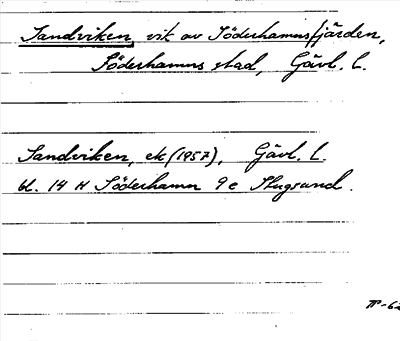 Sandviken, vik av Söderhamnsfjärden,
Söderhamns stad, Gävl. l.
Sandviken, ek (1957), Gävl. l.
bl. 14 H Söderhamn 9 e Stugsund.